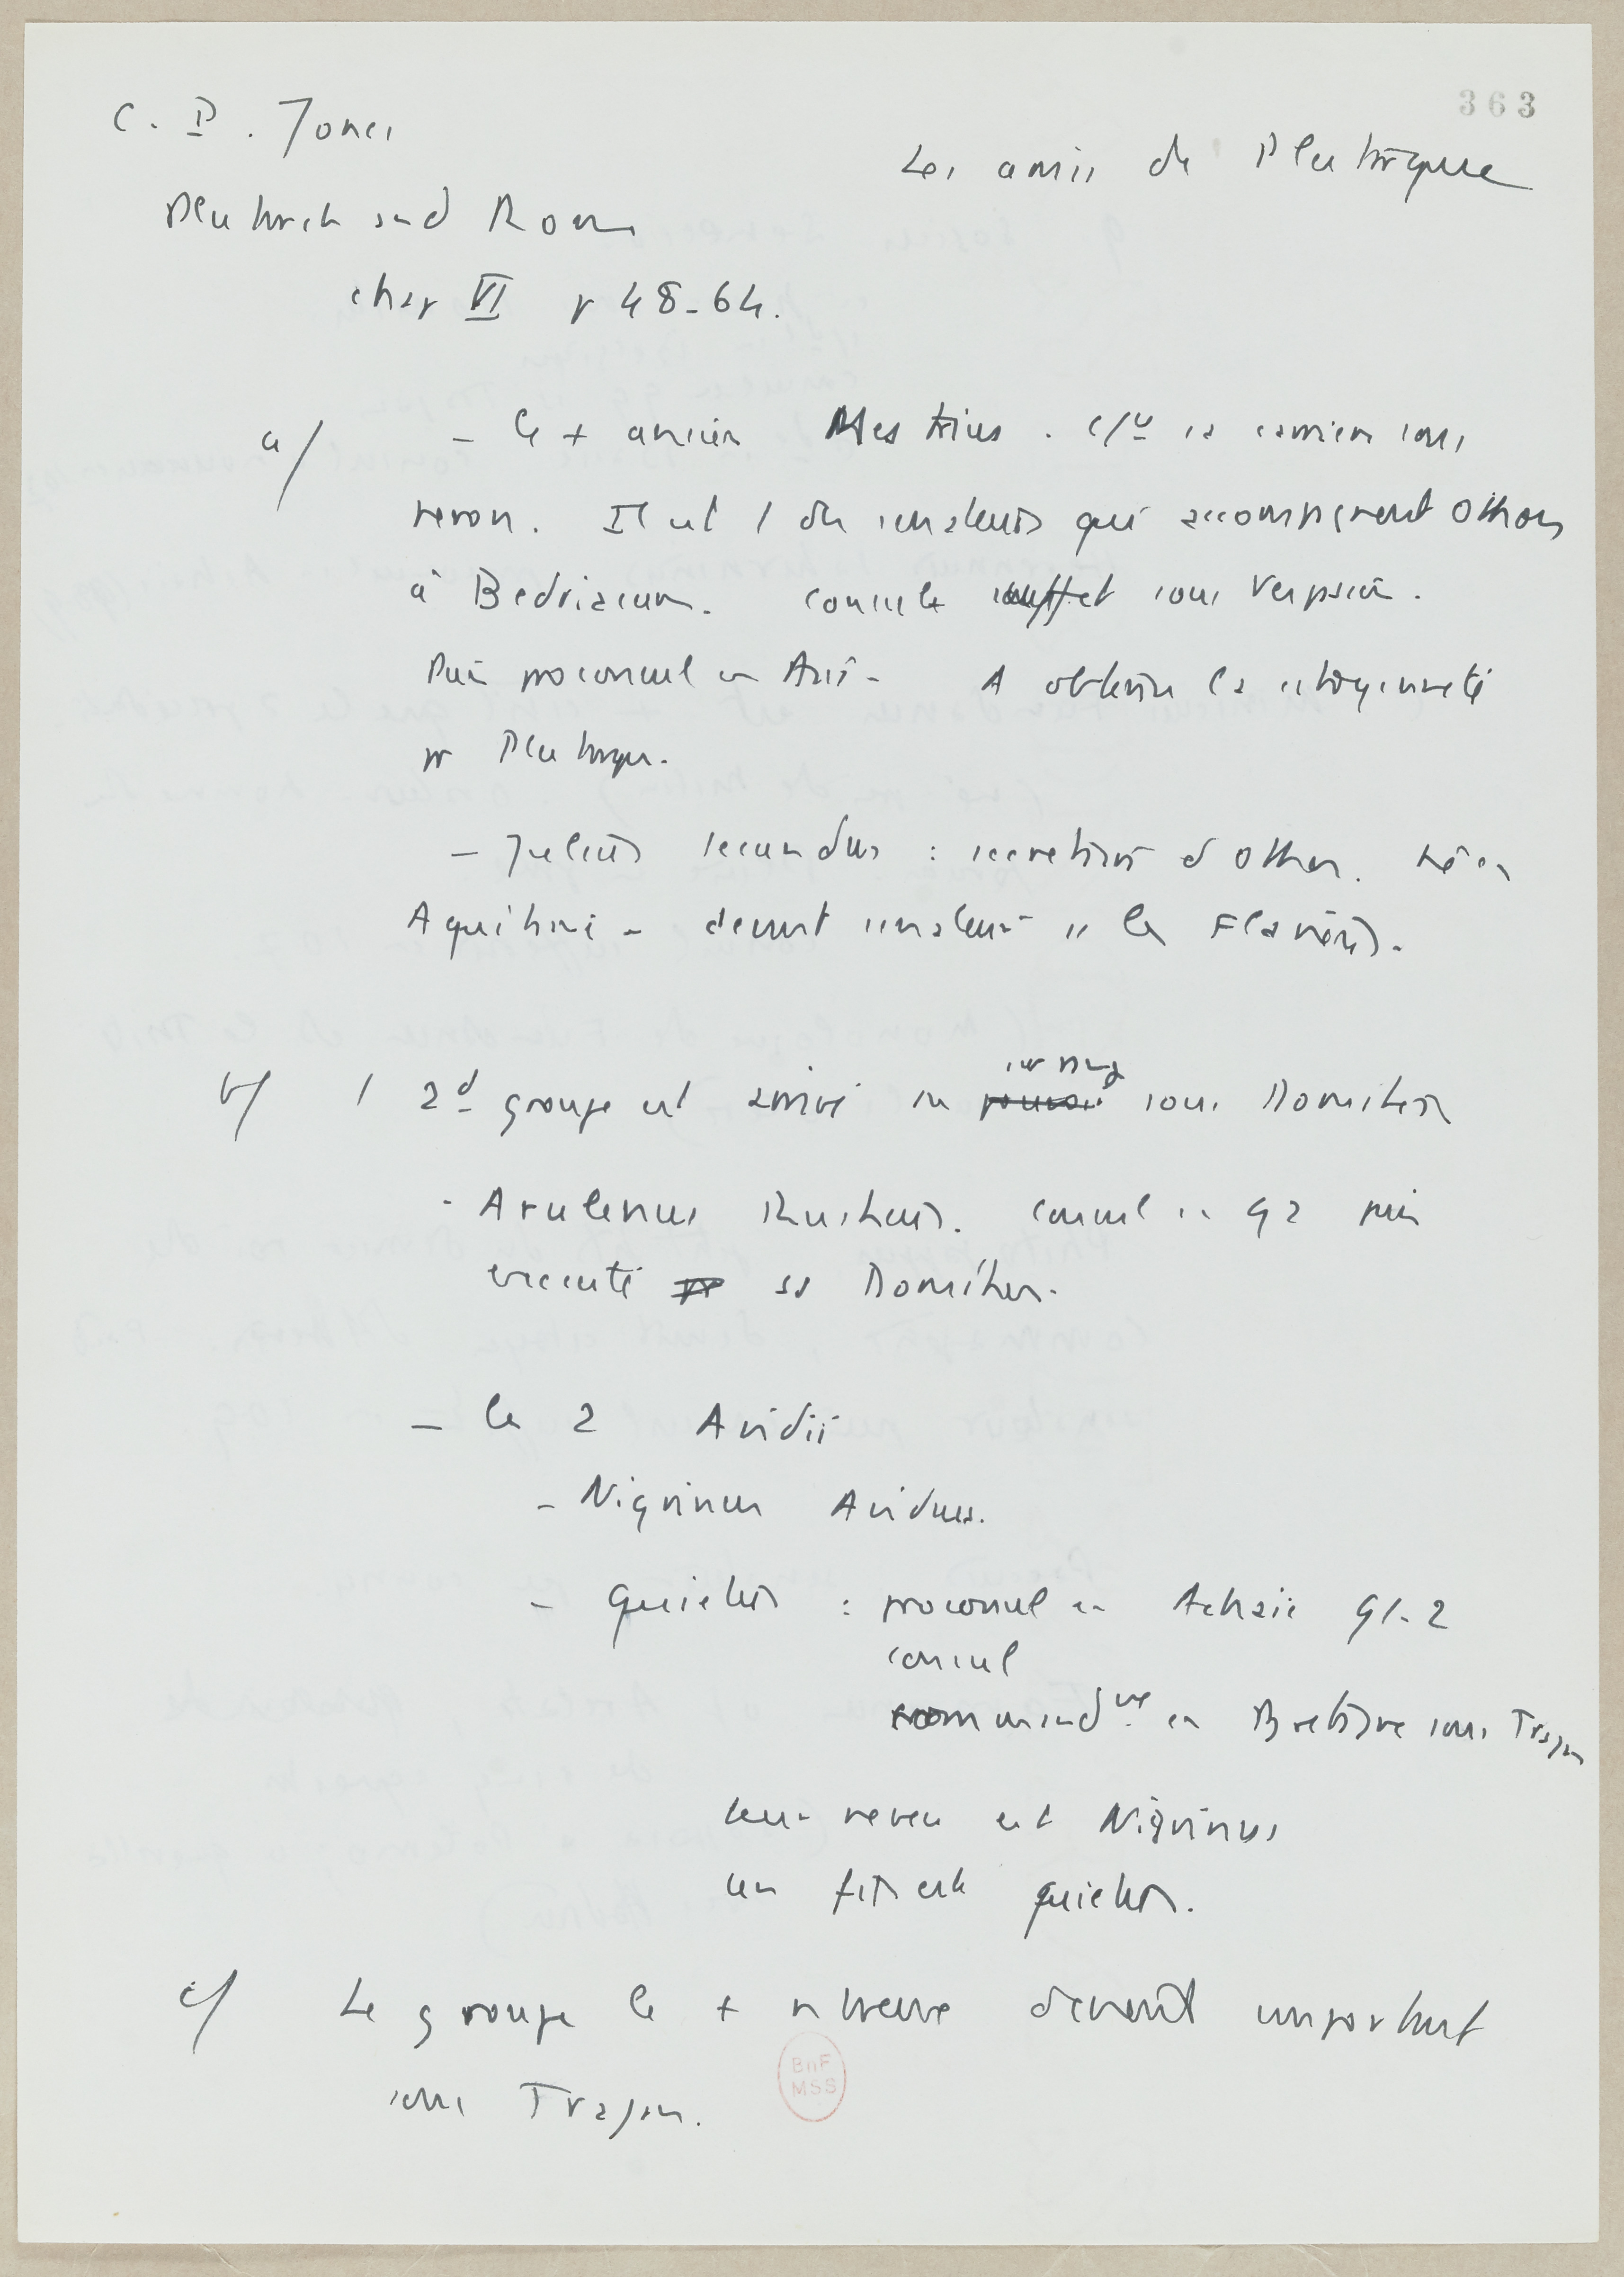 363
C. P. Jones
Les amis de Plutarque
Plutarch and Rome
chap VI p 48-64.
a/ - le + ancien Mestrius. sa carrière sous
Néron. Il est 1 des sénateurs qui accompagnent Othon
à Bedriacum. consule suffect sous Vespasien.
Puis proconsul en Asie - A obtenu la citoyenneté
pr Plutarque.
- Julius Secundus : secrétaire d'Othon. Né en
Aquitaine - devient sénateur ss les Flaviens.
sur rang
b/ 1 2d groupe est arrivé au pouvoir sous Domitien
- Arulenus Rusticus. consul en 92 puis
exécuté pr ss Domitien.
- les 2 Avidii
- Nigrinus Avidius.
- Quietus : proconsul en Achaie 91-2
consul
commandt en Bretagne sous Trajan
leur neveu est Nigrinus
un fils est Quietus.
c/ Le groupe le + nbreux devient important
sous Trajan.
BnF
MSS